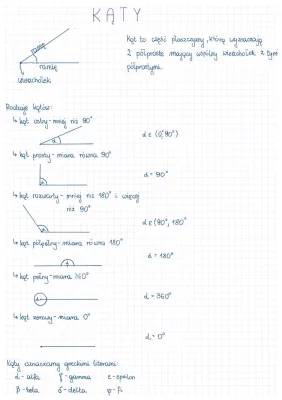 KĄTY
Kąt to część płaszczyzny, którą wyznaczają
2 półproste mające wspólny wierzchołek z tymi
półprostymi.
ramię
ramię
wierzchołek
Rodzaje kątów:
↳ kąt ostry - mniej niż 90°
α
α ∈ (0°, 90°)
↳ kąt prosty - miara równa 90°
α = 90°
↳ kąt rozwarty - mniej niż 180° i więcej
niż 90°
α ∈ (90°, 180°
↳ kąt półpełny - miara równa 180°
α = 180°
↳ kąt pełny - miara 360°
α = 360°
↳ kąt zerowy - miara 0°
α = 0°
Kąty oznaczamy greckimi literami:
α - alfa γ - gamma ε - epsilon
β - beta δ - delta φ - fi